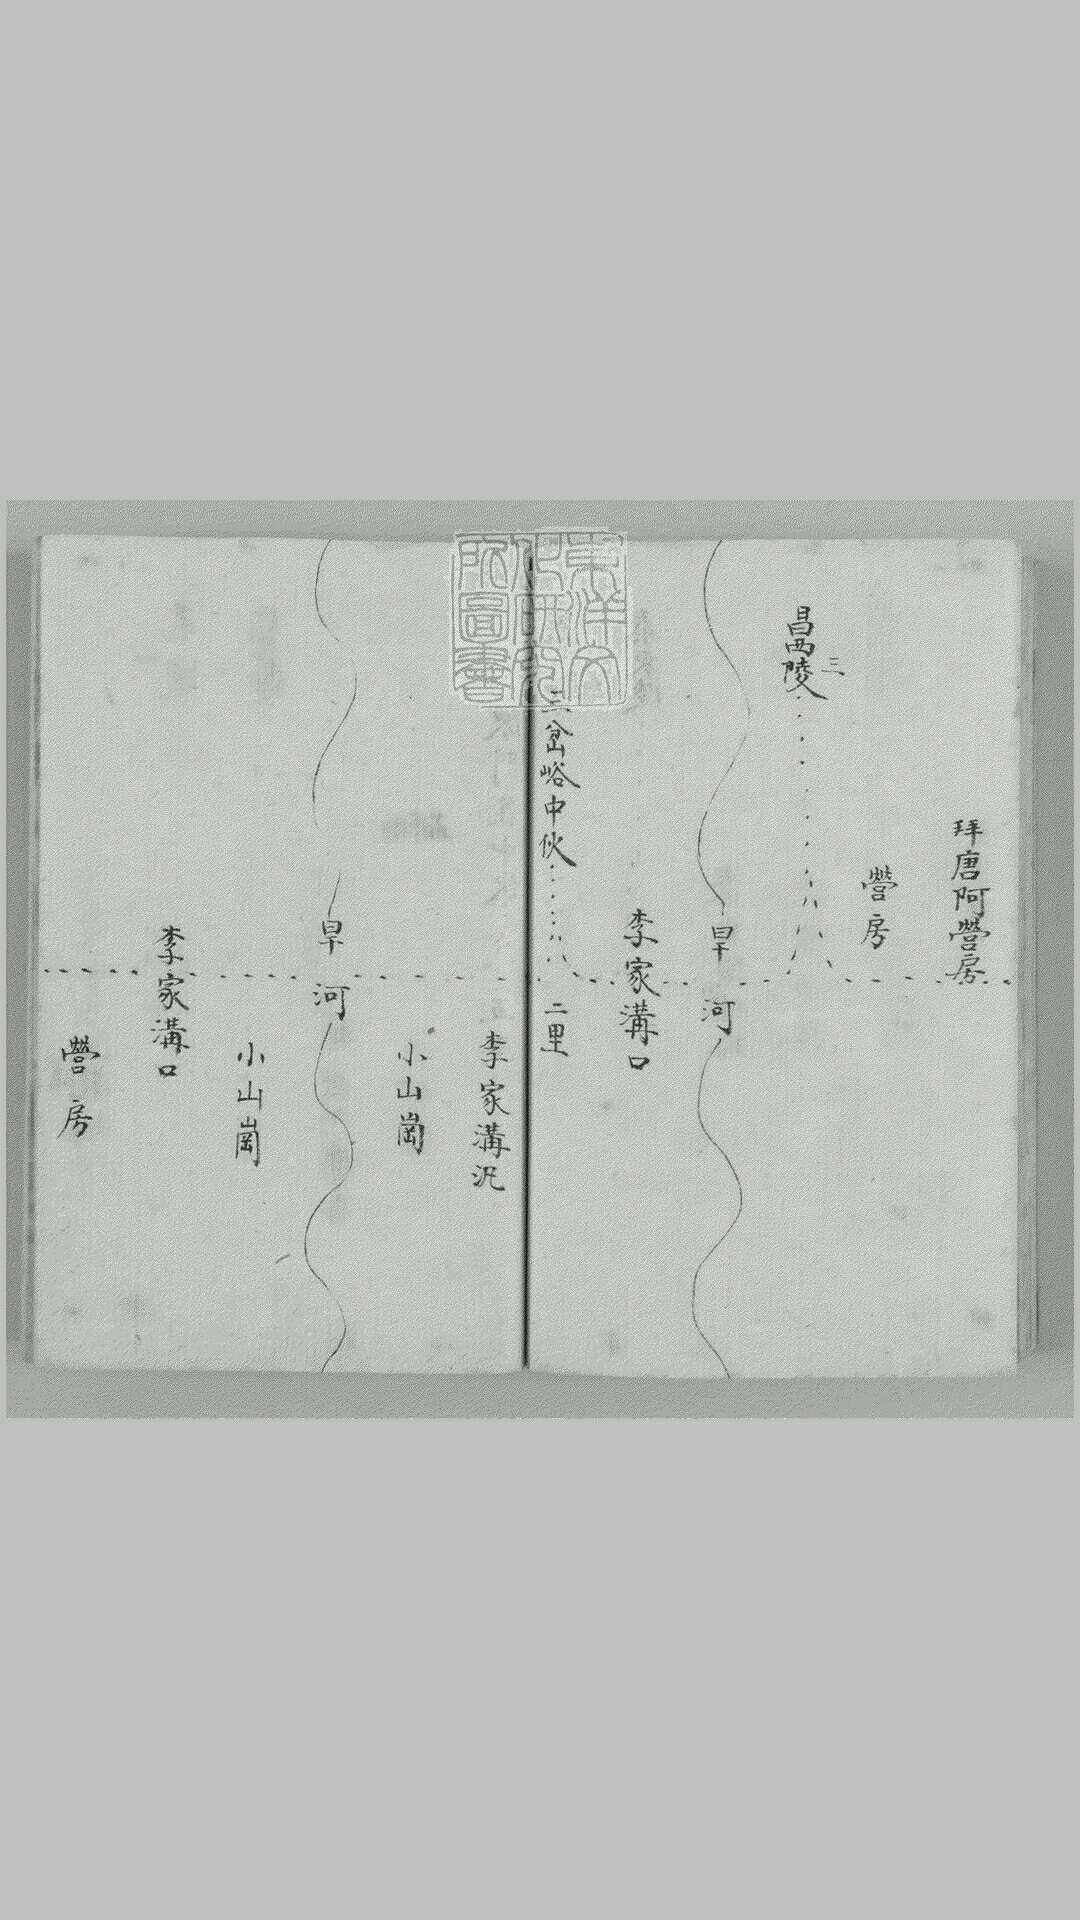 拜唐阿營房
營房
昌西陵
三
旱河
李家溝口
三岔峪中伙
二里
東洋文
化研究
所圖書
李家溝汛
小山崗
旱河
小山崗
李家溝口
營房